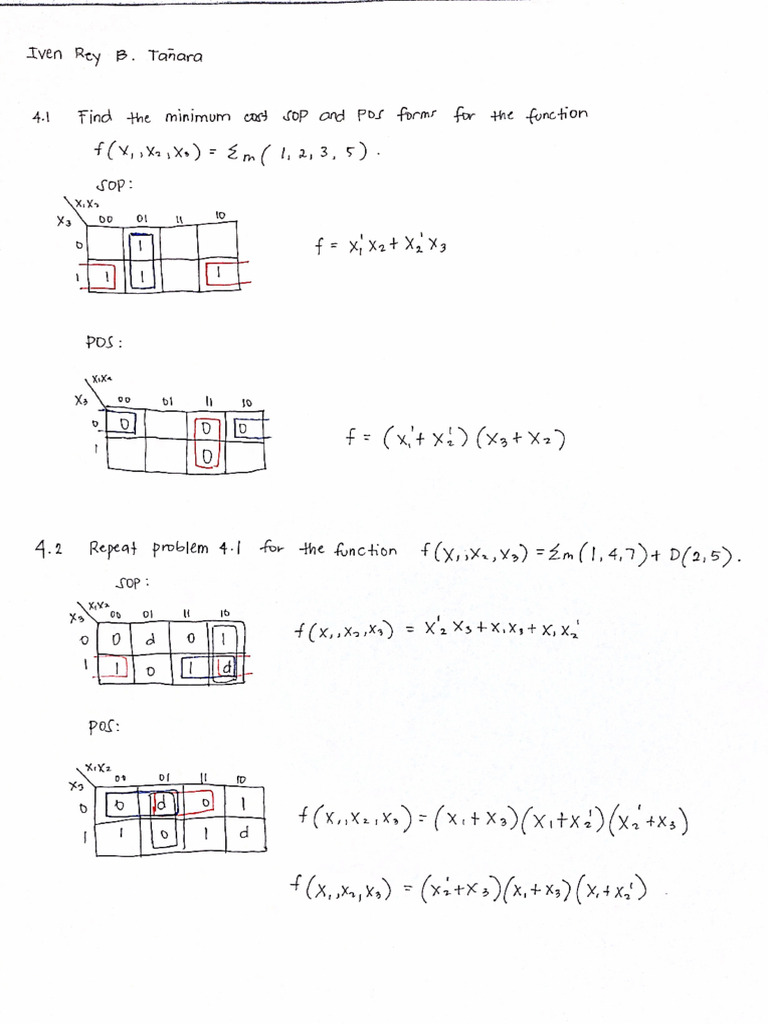 Iven Rey B. Tañara
4.1 Find the minimum cost SOP and POS forms for the function
f(x₁,x₂,x₃) = Σm(1,2,3,5).
SOP:
x₁x₂
x₃ 00 01 11 10
0 1
1 1 1 1
f = x₁'x₂ + x₂'x₃
POS:
x₁x₂
x₃ 00 01 11 10
0 0 0 0
1 0
f = (x₁'+x₂')(x₃+x₂)
4.2 Repeat problem 4.1 for the function f(x₁,x₂,x₃) = Σm(1,4,7) + D(2,5).
SOP:
x₁x₂
x₃ 00 01 11 10
0 0 d 0 1
1 1 0 1 d
f(x₁,x₂,x₃) = x₂'x₃ + x₁x₃ + x₁x₂'
POS:
x₁x₂
x₃ 00 01 11 10
0 0 d 0 1
1 1 0 1 d
f(x₁,x₂,x₃) = (x₁+x₃)(x₁+x₂')(x₂'+x₃)
f(x₁,x₂,x₃) = (x₂'+x₃)(x₁+x₃)(x₁+x₂')